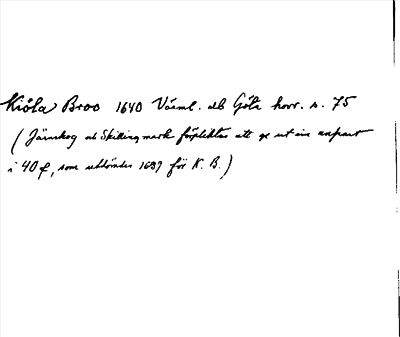 Kiöla Broo 1640 Värml. ab Göta horr. s. 75
(Järnskog ab Skillingmark förpliktas att ge ut sin anpart
i 40 f, som utdömdes 1637 för K. B.)